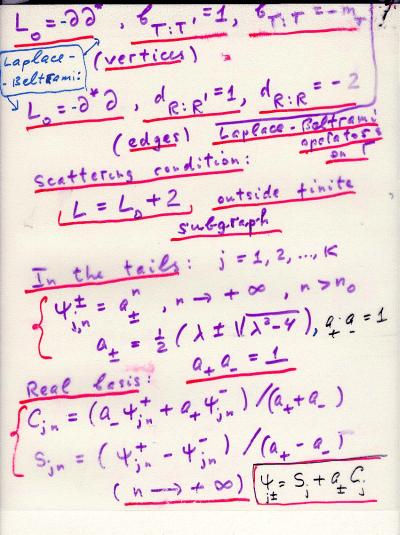 L₀ = -∂∂*, b_{T:T'} = 1, b_{T:T} = -m_T
Laplace-
-Beltrami:
(vertices)
L₀ = -∂*∂, d_{R:R'} = 1, d_{R:R} = -2
(edges) Laplace-Beltrami
operators
on Γ
Scattering condition:
L = L₀ + 2 outside finite
subgraph
In the tails: j = 1, 2, ..., K
ψ^±_{jn} = a^n_±, n → +∞, n > n₀
a_± = 1/2 (λ ± √(λ²-4)), a₊a₋ = 1
a₊a₋ = 1
Real basis:
C_{jn} = (a₋ψ⁺_{jn} + a₊ψ⁻_{jn}) / (a₊+a₋)
S_{jn} = (ψ⁺_{jn} - ψ⁻_{jn}) / (a₊ - a₋)
(n → +∞) ψ_{j±} = S_j + a_± C_j